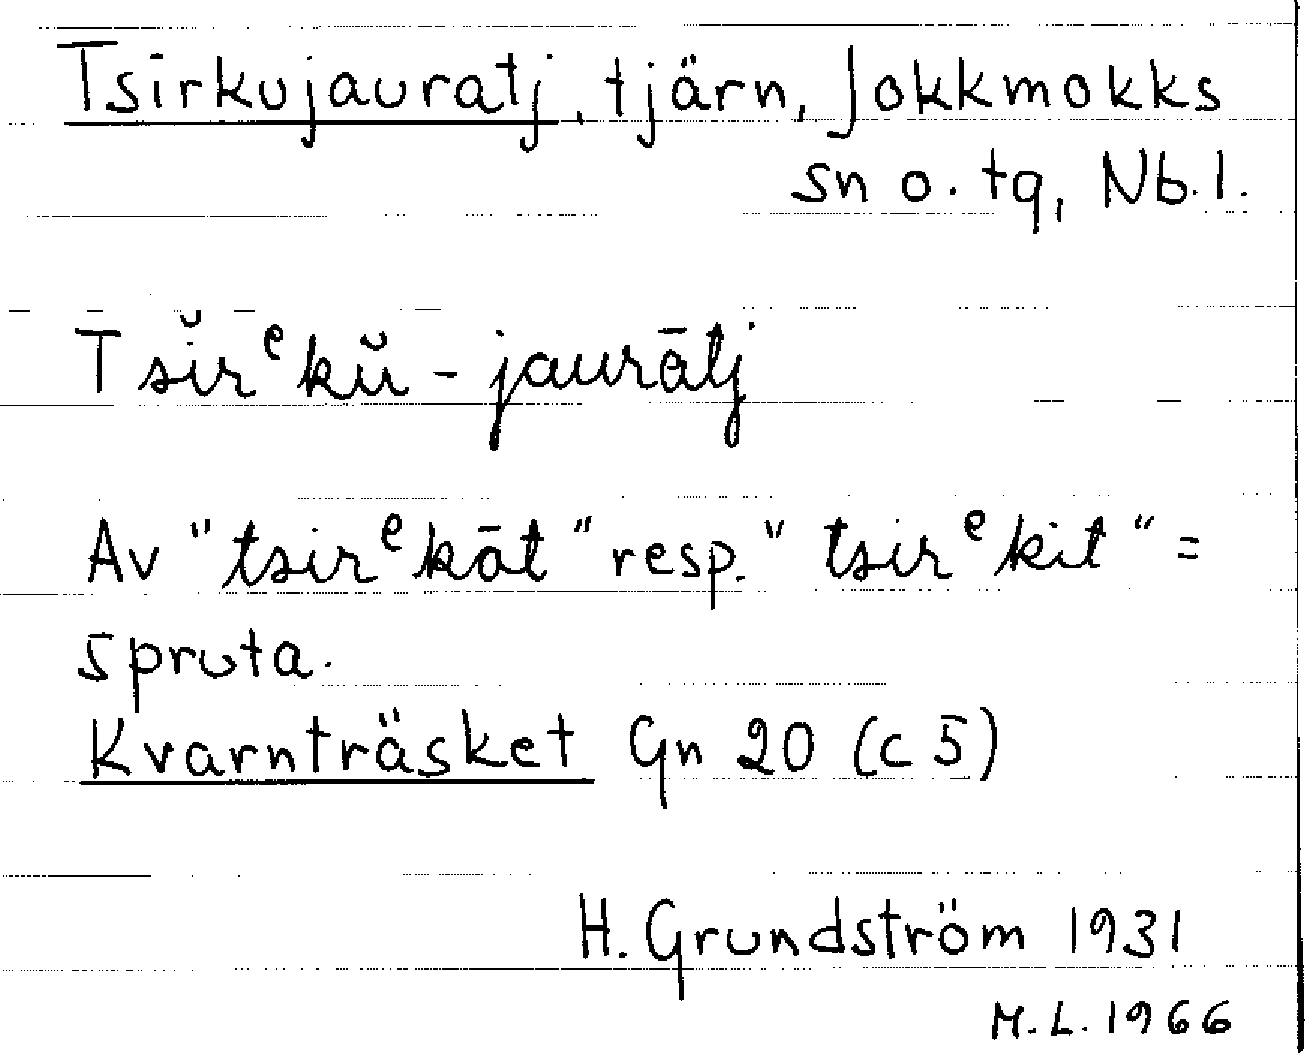 Tsirkujauratj, tjärn, Jokkmokks
sn o. tg, Nb.l.
Tsĭrᵉkŭ-jaurātj
Av "tsirᵉkāt" resp. "tsirᵉkit" =
spruta.
Kvarnträsket Gn 20 (c 5)
H. Grundström 1931
M.L. 1966